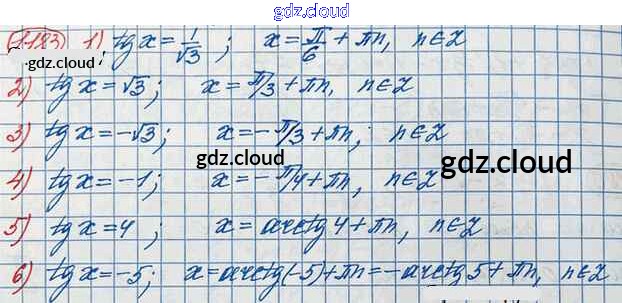 gdz.cloud
1123) 1) tg x = 1/√3 ; x = π/6 + πn, n∈Z
gdz.cloud
2) tg x = √3; x = π/3 + πn, n∈Z
3) tg x = -√3; x = -π/3 + πn; n∈Z
gdz.cloud gdz.cloud
4) tg x = -1; x = -π/4 + πn, n∈Z
5) tg x = 4 ; x = arctg 4 + πn, n∈Z
6) tg x = -5; x = arctg(-5) + πn = -arctg 5 + πn, n∈Z